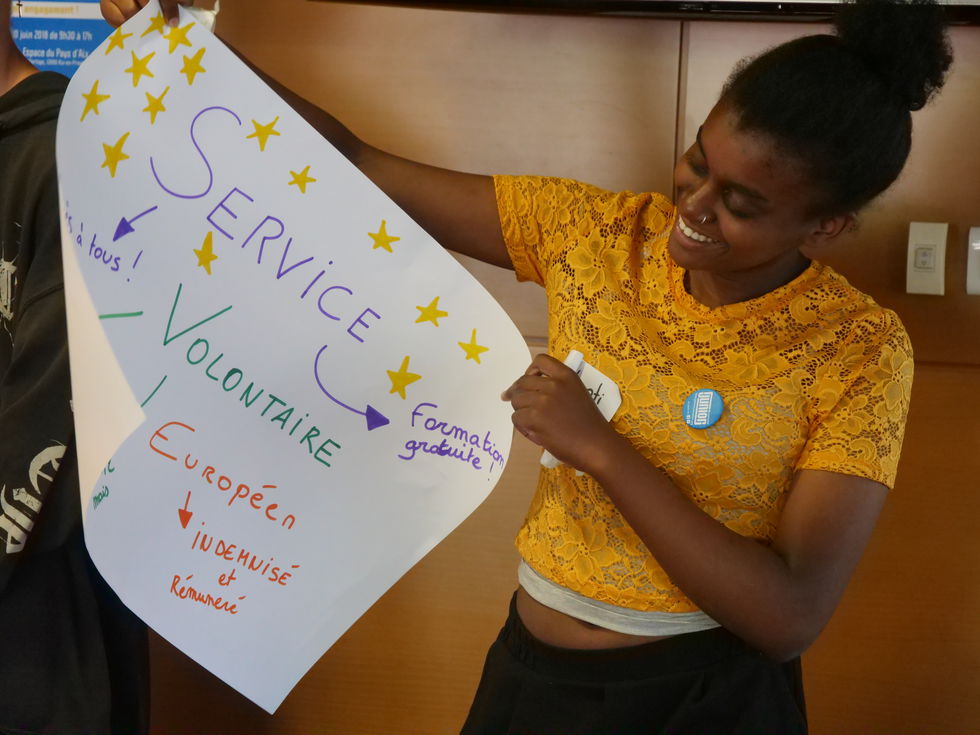 engagement !
juin 2018 de 9h30 à 17h
Espace du Pays d'Aix
SERVICE
à tous !
VOLONTAIRE
Formation
gratuite !
Européen
INDEMNISÉ
et
Rémuneré
mois
JUNIOR